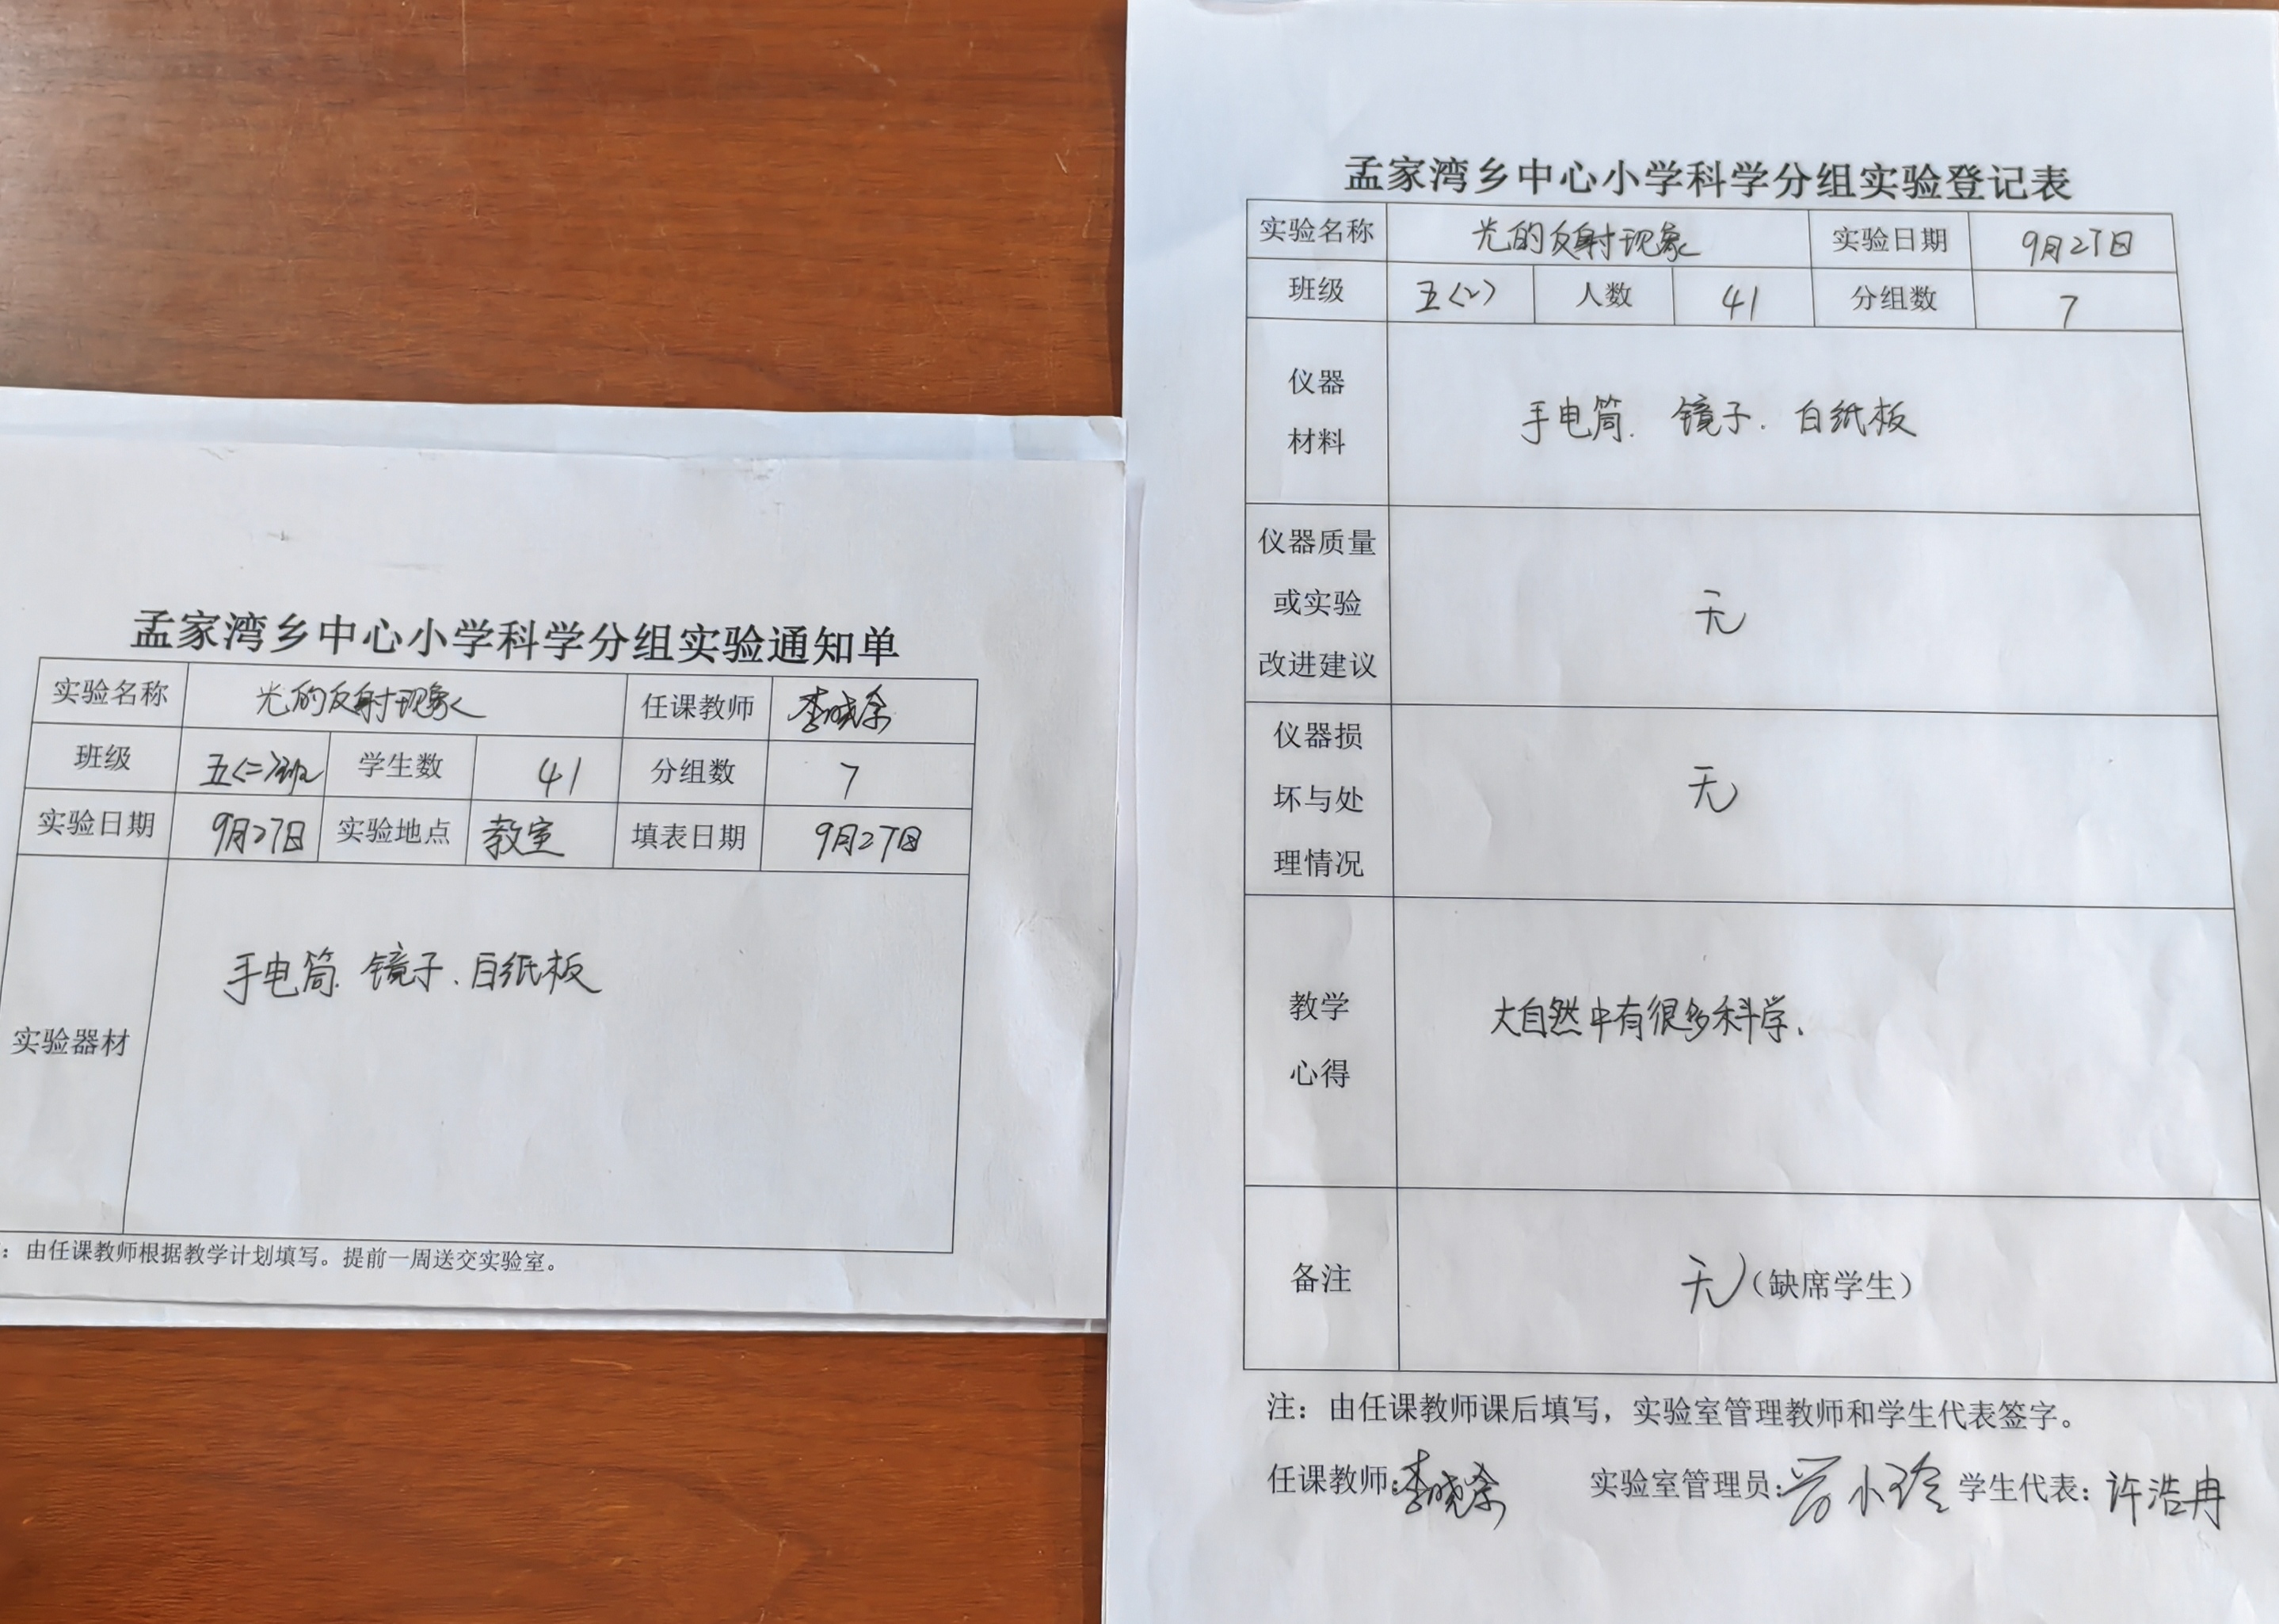 孟家湾乡中心小学科学分组实验通知单
实验名称 光的反射现象 任课教师 李晓余
班级 五<二>班 学生数 41 分组数 7
实验日期 9月27日 实验地点 教室 填表日期 9月27日
实验器材 手电筒. 镜子. 白纸板
：由任课教师根据教学计划填写。提前一周送交实验室。
孟家湾乡中心小学科学分组实验登记表
实验名称 光的反射现象 实验日期 9月27日
班级 五<2> 人数 41 分组数 7
仪器
材料
手电筒. 镜子. 白纸板
仪器质量
或实验
改进建议
无
仪器损
坏与处
理情况
无
教学
心得
大自然中有很多科学.
备注 无（缺席学生）
注：由任课教师课后填写，实验室管理教师和学生代表签字。
任课教师:李晓余 实验室管理员: 小玲 学生代表: 许浩冉